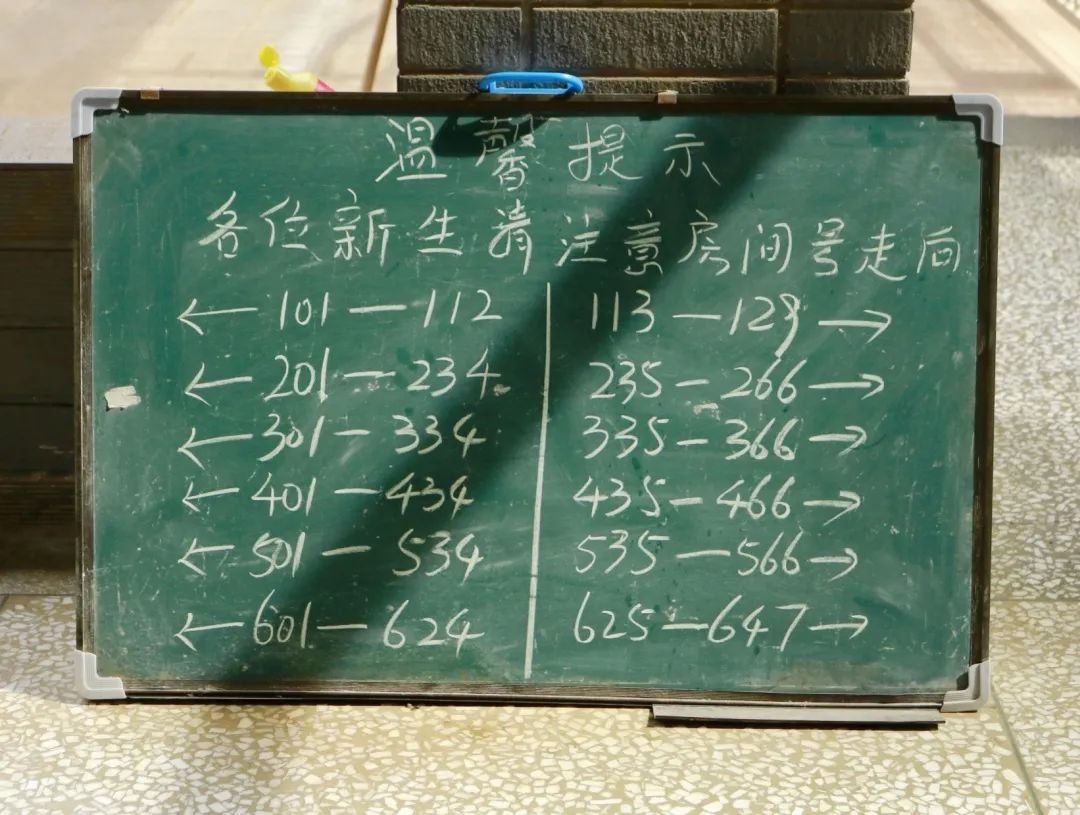 温馨提示
各位新生请注意房间号走向
← 101—112 113—129 →
← 201—234 235—266 →
← 301—334 335—366 →
← 401—434 435—466 →
← 501—534 535—566 →
← 601—624 625—647 →